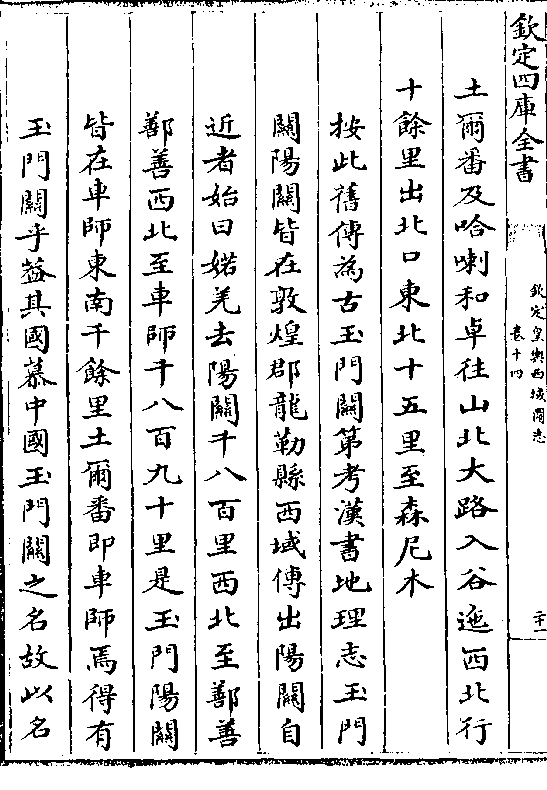 欽定四庫全書
欽定皇輿西域圖志
卷十四
二十一
土爾番及哈喇和卓往山北大路入谷迤西北行
十餘里出北口東北十五里至森尼木
按此舊傳為古玉門關第考漢書地理志玉門
關陽關皆在敦煌郡龍勒縣西域傳出陽關自
近者始曰婼羌去陽關千八百里西北至鄯善
鄯善西北至車師千八百九十里是玉門陽關
皆在車師東南千餘里土爾番即車師焉得有
玉門關乎葢其國慕中國玉門關之名故以名